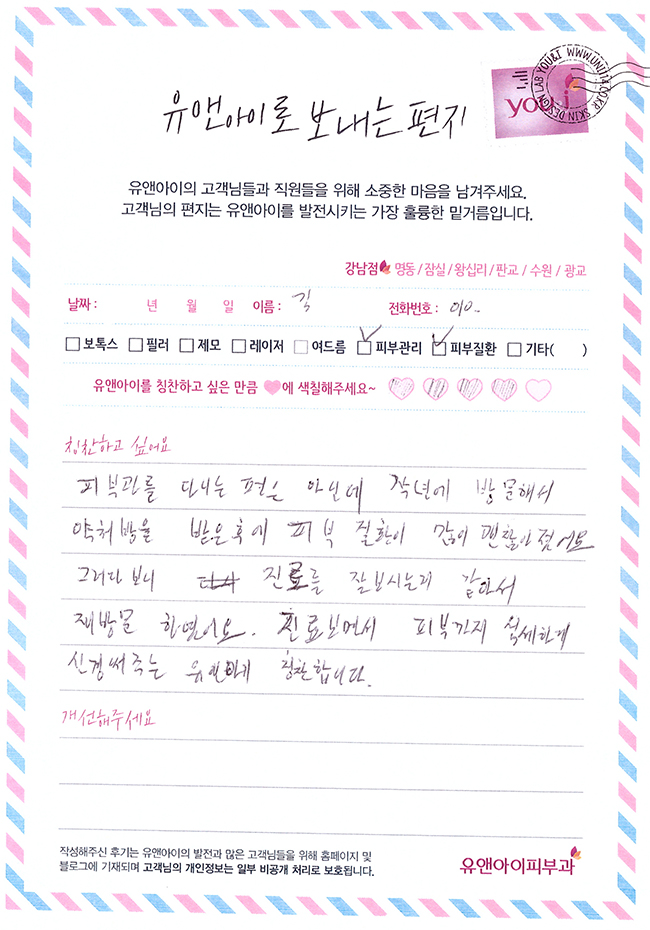 유앤아이로 보내는 편지
you&i
SKIN DESIGN LAB YOU&I WWW.UNI114.CO.KR
유앤아이의 고객님들과 직원들을 위해 소중한 마음을 남겨주세요.
고객님의 편지는 유앤아이를 발전시키는 가장 훌륭한 밑거름입니다.
강남점 명동 / 잠실 / 왕십리 / 판교 / 수원 / 광교
날짜 : 년 월 일 이름 : 김 전화번호 : 010-
보톡스 필러 제모 레이저 여드름 피부관리 피부질환 기타( )
유앤아이를 칭찬하고 싶은 만큼 에 색칠해주세요~
칭찬하고 싶어요
피부관를 다니는 편은 아닌데 작년에 방문해서
약처방을 받은후에 피부 질환이 많이 괜찮아졌어요
그러다 보니 진료를 잘보시는거 같아서
재방문 하였어요. 진료보면서 피부까지 섬세하게
신경써주는 유앤아이 칭찬합니다.
개선해주세요
작성해주신 후기는 유앤아이의 발전과 많은 고객님들을 위해 홈페이지 및
블로그에 기재되며 고객님의 개인정보는 일부 비공개 처리로 보호됩니다.
유앤아이피부과